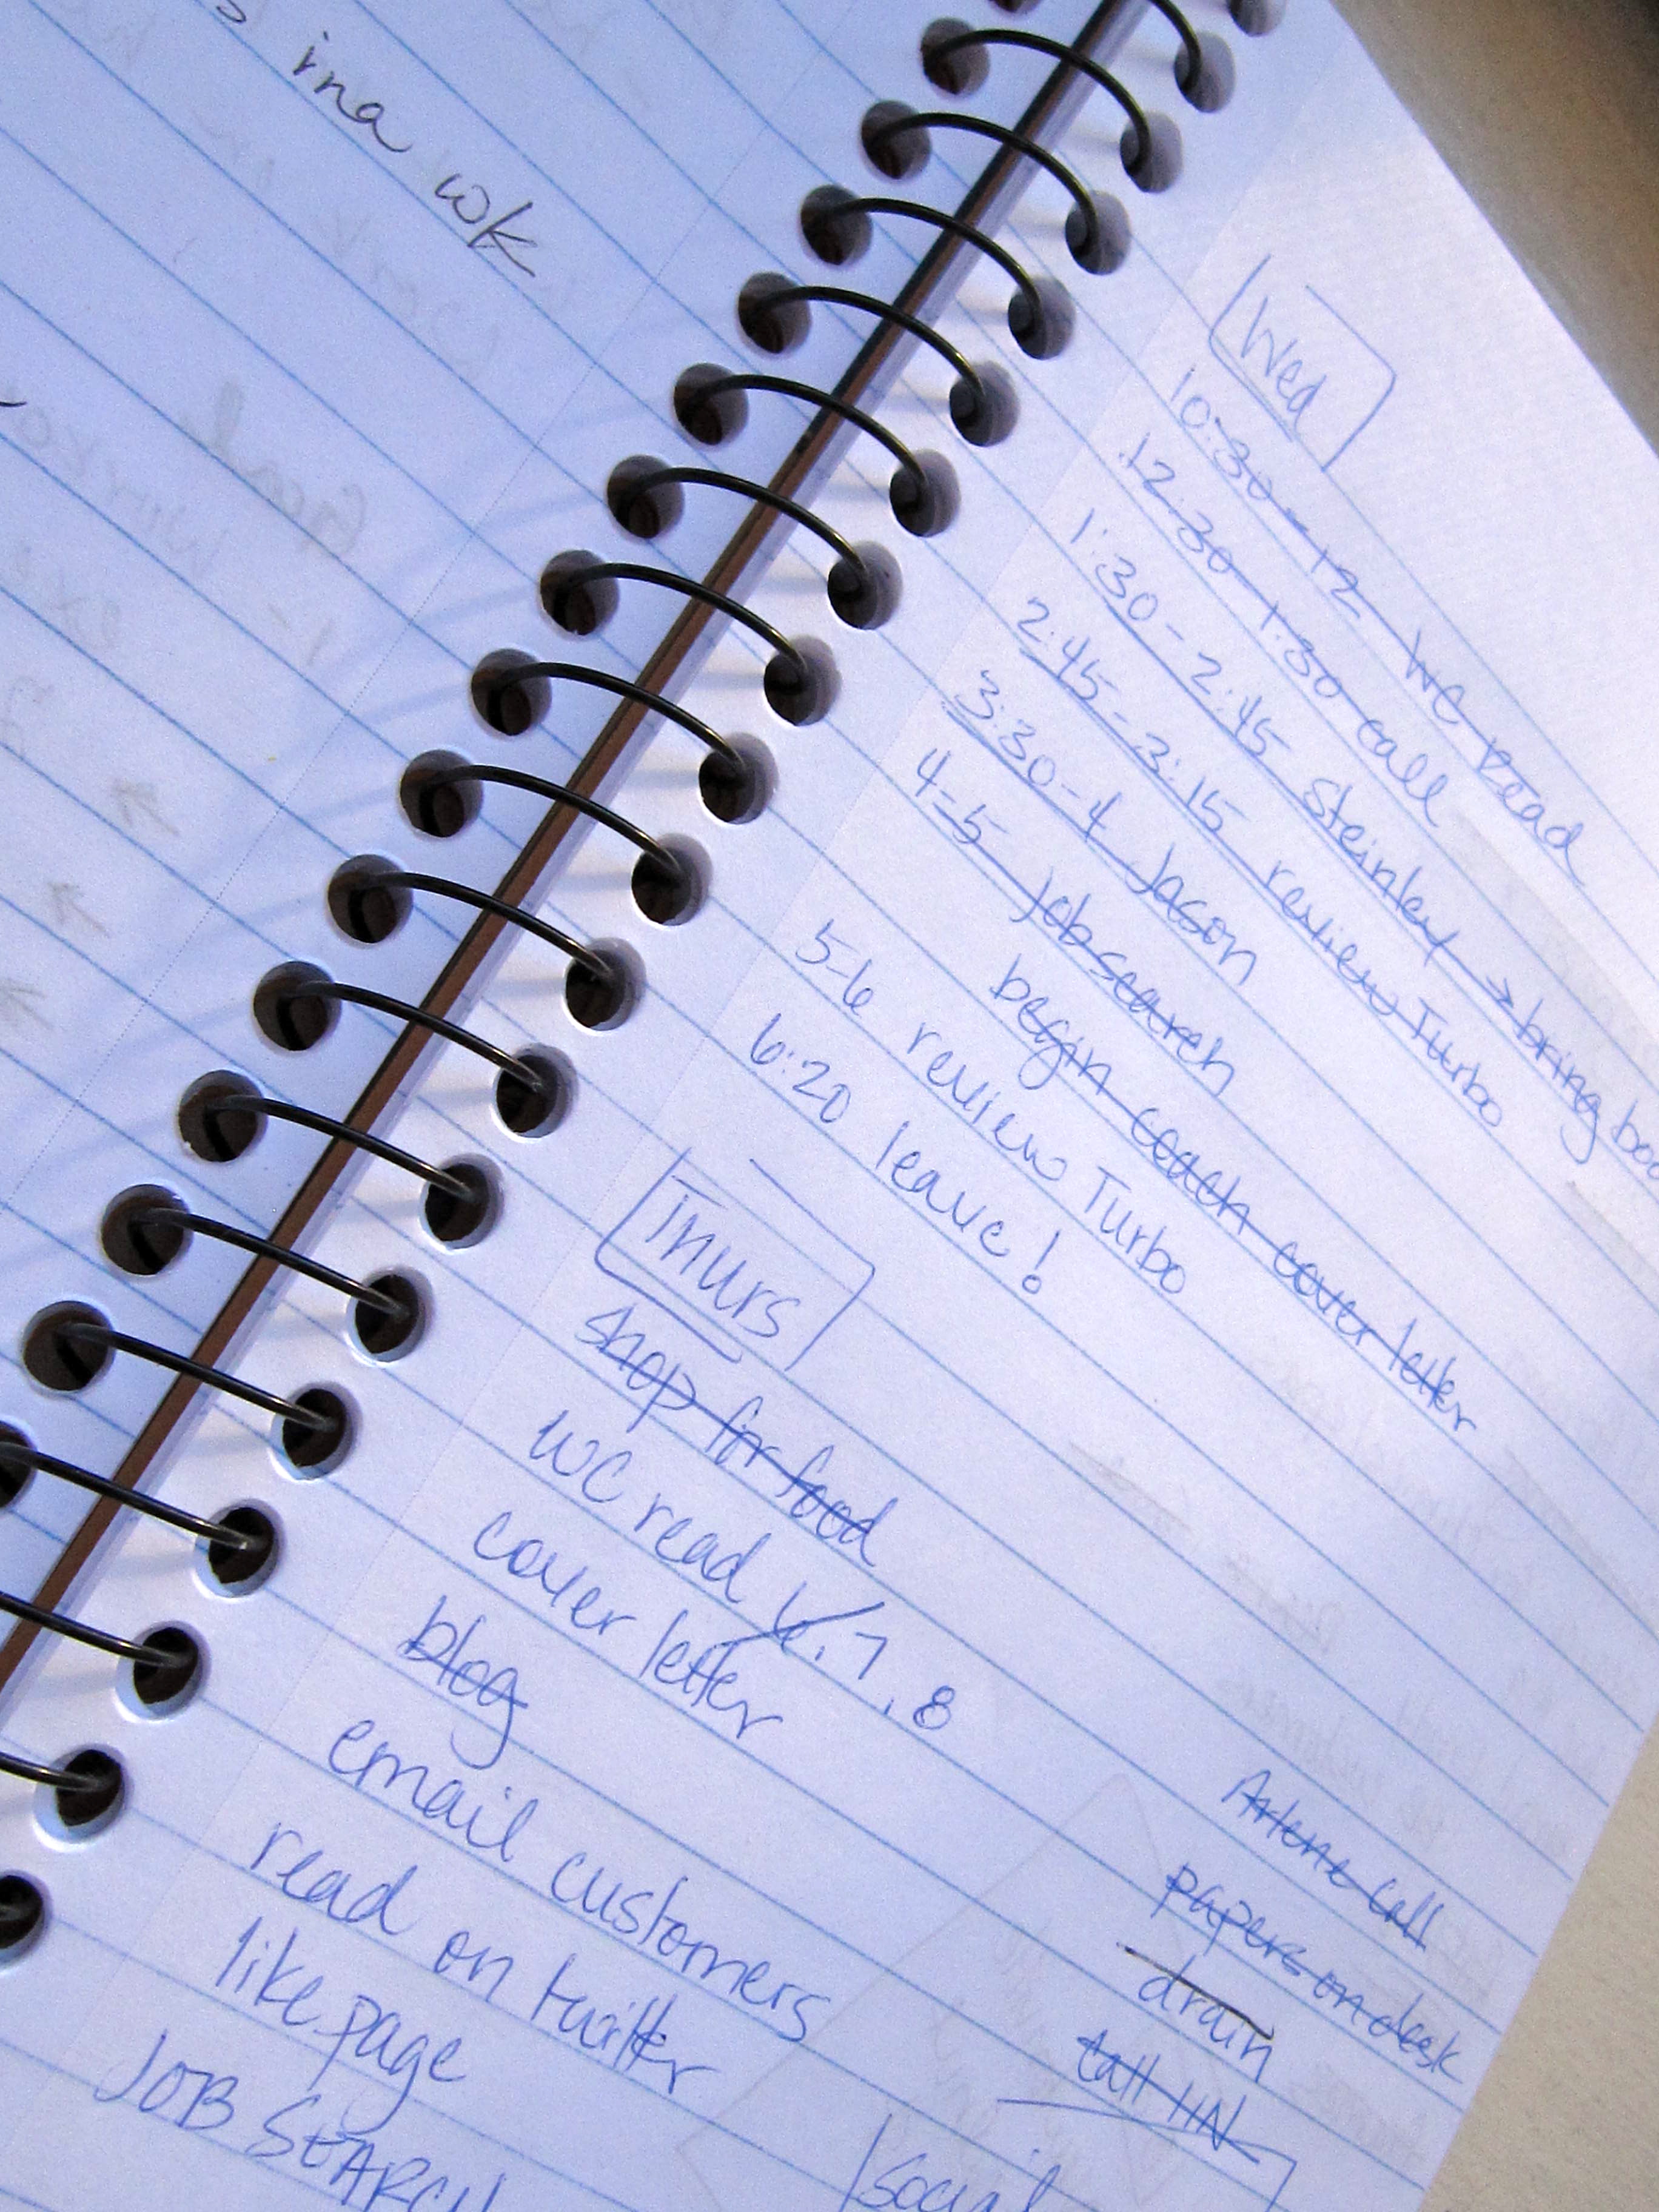 ina wk
Wed
10:30-12 WC read
12:30-1:30 call
1:30-2:45 Steinley → bring
2:45-3:15 review Turbo
3:30-4 Jason
4-5 job search
begin coach cover letter
5-6 review Turbo
6:20 leave!
Thurs
shop for food
WC read 6, 7, 8
cover letter
blog
email customers
read on twitter
like page
JOB SEARCH
Arlene call
papers on desk
drain
call
social